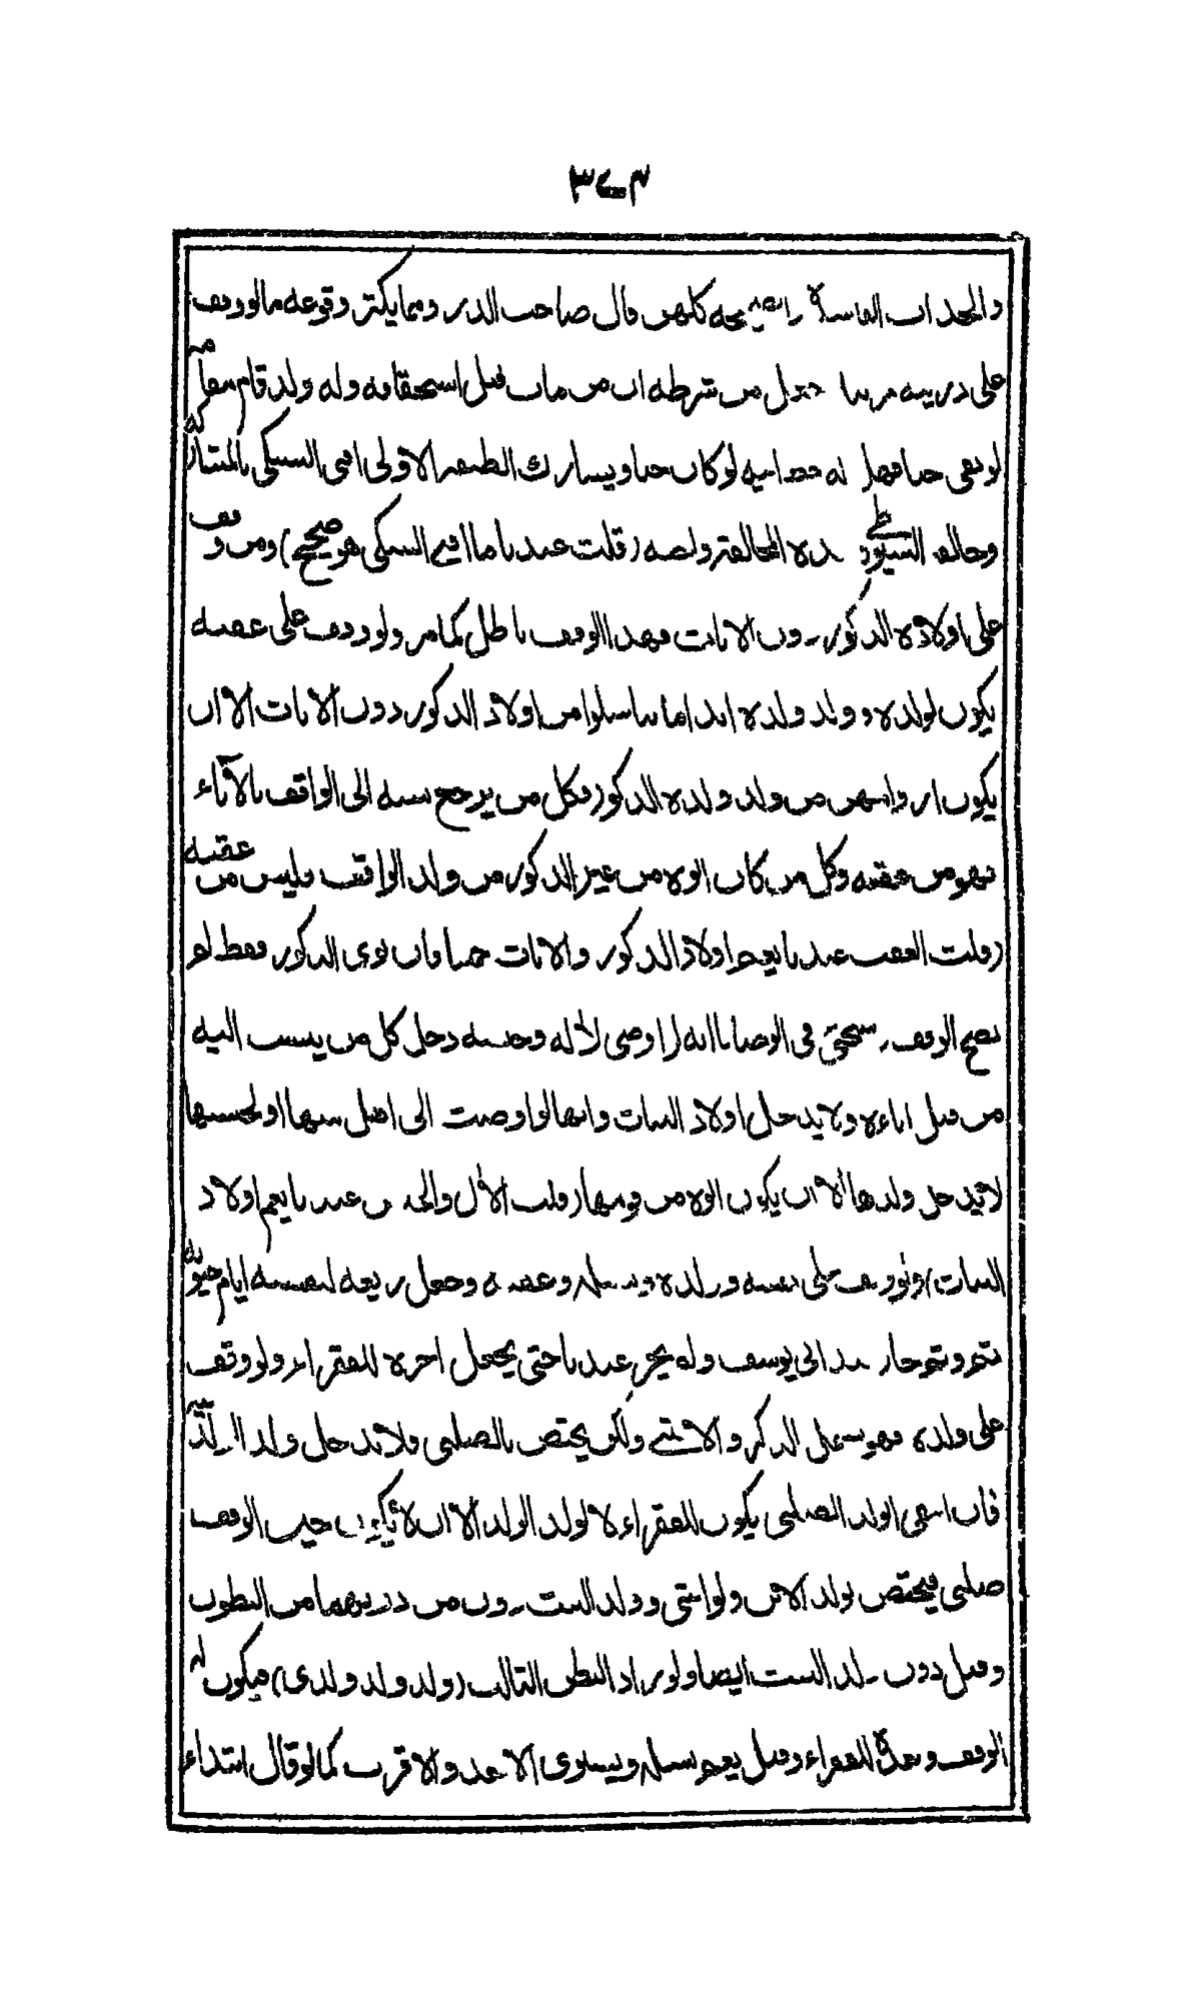 ٣٤٣
والجدات الفاسدة والصحيحة كلهن قال صاحب الدر ومما يكثر وقوعه ما لو وقف
على ذريته مرتبا وجعل من شرطه ان من مات قبل استحقاقه وله ولد قام مقامه
لو بقى حيا فهل له حظ ابيه لو كان حيا ويشارك الطبقة الاولى افتى السبكى بالمشاركة
وخالفه السيوطى وهذه المخالفة (قلت عندنا ما افتى السبكى هو صحيح) ومن وقف
على اولاده الذكور دون الاناث فهذا الوقف باطل كما مر ولو وقف على عقبه
يكون لولده وولد ولده ابدا ما تناسلوا من اولاد الذكور دون الاناث الا ان
يكون ازواجهن من ولد ولده الذكور فكل من يرجع نسبه الى الواقف بالآباء
فهو من عقبه وكل من كان ابوه من غير الذكور من ولد الواقف فليس من عقبه
(قلت العقب عندنا يعم اولاد الذكور والاناث جميعا فان نوى الذكور فقط لم
يصح الوقف سيجئ فى الوصايا انه لو اوصى لآله وجنسه دخل كل من ينسب اليه
من قبل اباءه ولا يدخل اولاد البنات وانها لو اوصت الى اهل بيتها او لجنسها
لا يدخل ولدها الا ان يكون ابوه من قومها (قلت الآل والجنس عندنا يعم اولاد
البنات) ولو وقف على نفسه وولده ونسله وعقبه وجعل ريعه لنفسه ايام حيوته
ثم وثم جاز عند ابى يوسف ولم يجز عندنا حتى يجعل اخره للفقراء ولو وقف
على ولده فهو يشمل الذكر والانثى ولكن يختص بالصلبى ولا يدخل ولد الولد فيه
فان انتفى الولد الصلبى يكون للفقراء لا لولد الولد الا ان لا يكون حين الوقف
صلبى فيختص بولد الابن ولو انثى وولد البنت دون من دونهما من البطون
وقيل دون ولد البنت ايضا ولو زاد البطن الثالث (ولد ولد ولدى) فيكون له
الوقف وبعده للفقراء وقيل يعم نسله ويستوى الابعد والاقرب كما لو قال ابتداء